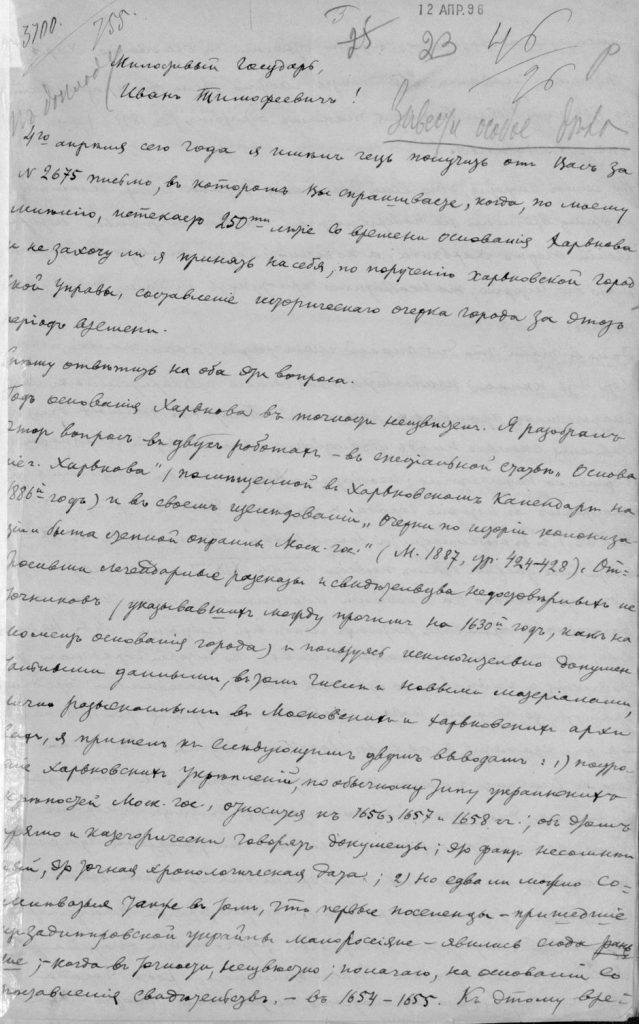 12 АПР. 96
3700.
755.
25
23
46
96
Р
Къ докладу
Милостивый Государь,
Иванъ Тимофеевичъ!
Завести особое дѣло
4го апрѣля сего года я имѣлъ честь получить отъ Васъ за
N 2675 письмо, въ которомъ Вы спрашиваете, когда, по моему
мнѣнію, истекаетъ 250тилѣтіе со времени основанія Харькова
и не захочу ли я принять на себя, по порученію Харьковской Город
ской Управы, составленіе историческаго очерка города за этотъ
періодъ времени.
Спѣшу отвѣтить на оба эти вопроса.
Годъ основанія Харькова въ точности неизвѣстенъ. Я разобралъ
этотъ вопросъ въ двухъ работахъ – въ спеціальной статьѣ „Основа
ніе г. Харькова" (помѣщенной въ Харьковскомъ Календарѣ на
1886й годъ) и въ своемъ изслѣдованіи „Очерки по исторіи колониза
ціи и быта степной окраины Моск. гос." (М. 1887, стр. 424–428). От=
бросивши легендарные разсказы и свидѣтельства недостовѣрныхъ ис
точниковъ (указывавшихъ между прочимъ на 1630й годъ, какъ на
моментъ основанія города) и пользуясь исключительно докумен
тальными данными, въ томъ числѣ и новыми матеріалами,
лично разысканными въ Московскихъ и Харьковскихъ архи
вахъ, я пришелъ къ слѣдующимъ двумъ выводамъ: 1) построе
ніе Харьковскихъ укрѣпленій, по обычному типу украинскихъ
крѣпостей Моск. гос., относится къ 1656, 1657 и 1658 гг.; объ этомъ
прямо и категорически говорятъ документы; это фактъ несомнѣн
ный, это точная хронологическая дата; 2) но едва ли можно со=
мнѣваться также въ томъ, что первые поселенцы – пришедшіе
изъ заднѣпровской украйны малороссіяне – явились сюда рань
ше; – когда въ точности, неизвѣстно; полагаю, на основаніи со
поставленія свидѣтельствъ, – въ 1654–1655. Къ этому вре=